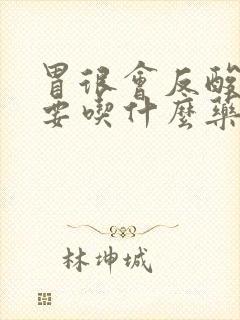 胃很會反酸
要喫什麼藥
林坤城